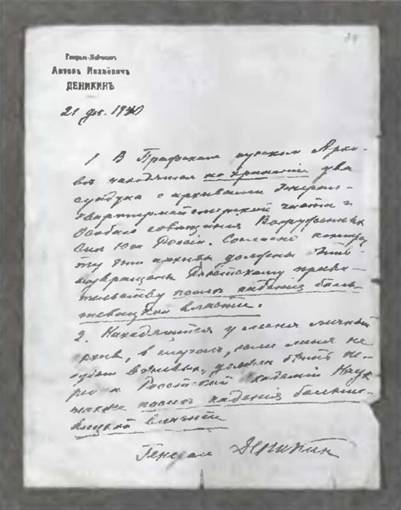 Генерал-Лейтенант
Антонъ Ивановичъ
ДЕНИКИНЪ
21 дек.
1. В Пражском русском Архи-
ве находились на хранении два
сундука с архивами Генерал-
квартирмейстерской части и
Особого совещания Вооруженных
Сил Юга России. Согласно контрак-
ту эти архивы должны быть
возвращены Российскому прави-
тельству после падения боль-
шевицкой власти.
2. Находящийся у меня личный
архив, в случае, если меня не
будет в живых, должен быть пе-
редан Российской Академии Наук
также после падения больше-
вицкой власти
Генерал Деникин